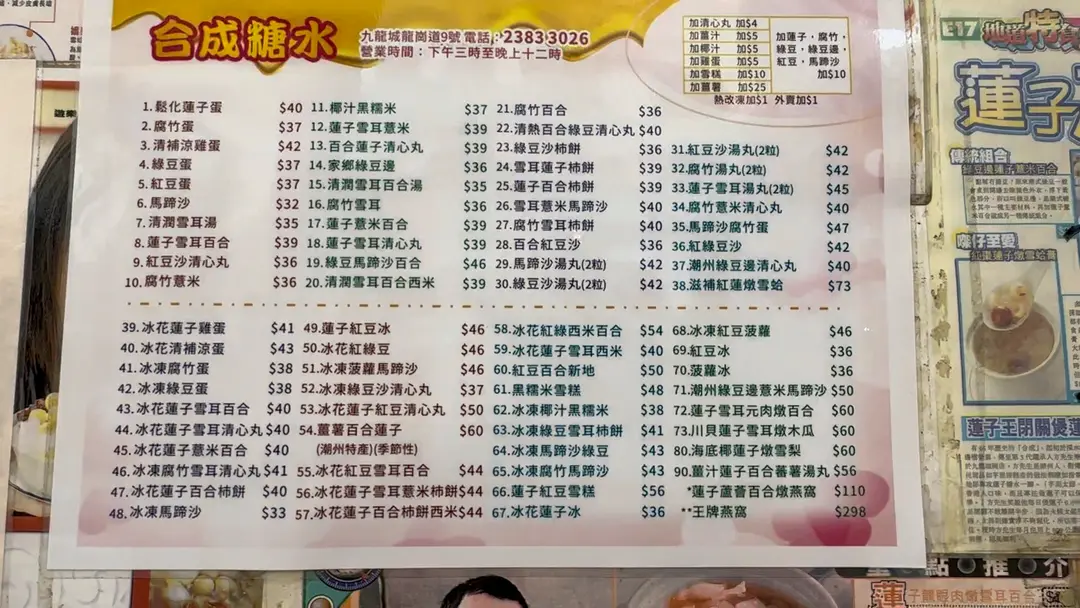 合成糖水
九龍城龍崗道9號 電話：2383 3026
營業時間：下午三時至晚上十二時
加清心丸 加$4
加薑汁 加$5
加椰汁 加$5
加雞蛋 加$5
加雪糕 加$10
加薑薯 加$25
加蓮子，腐竹，
綠豆，綠豆邊，
紅豆，馬蹄沙
加$10
熱改凍加$1 外賣加$1
1.鬆化蓮子蛋 $40
2.腐竹蛋 $37
3.清補涼雞蛋 $42
4.綠豆蛋 $37
5.紅豆蛋 $37
6.馬蹄沙 $32
7.清潤雪耳湯 $35
8.蓮子雪耳百合 $39
9.紅豆沙清心丸 $36
10.腐竹薏米 $36
11.椰汁黑糯米 $37
12.蓮子雪耳薏米 $39
13.百合蓮子清心丸 $39
14.家鄉綠豆邊 $36
15.清潤雪耳百合湯 $35
16.腐竹雪耳 $36
17.蓮子薏米百合 $39
18.蓮子雪耳清心丸 $39
19.綠豆馬蹄沙百合 $46
20.清潤雪耳百合西米 $39
21.腐竹百合 $36
22.清熱百合綠豆清心丸 $40
23.綠豆沙柿餅 $36
24.雪耳蓮子柿餅 $39
25.蓮子百合柿餅 $39
26.雪耳薏米馬蹄沙 $40
27.腐竹雪耳柿餅 $40
28.百合紅豆沙 $36
29.馬蹄沙湯丸(2粒) $42
30.綠豆沙湯丸(2粒) $42
31.紅豆沙湯丸(2粒) $42
32.腐竹湯丸(2粒) $42
33.蓮子雪耳湯丸(2粒) $45
34.腐竹薏米清心丸 $40
35.馬蹄沙腐竹蛋 $47
36.紅綠豆沙 $42
37.潮州綠豆邊清心丸 $40
38.滋補紅蓮燉雪蛤 $73
39.冰花蓮子雞蛋 $41
40.冰花清補涼蛋 $43
41.冰凍腐竹蛋 $38
42.冰凍綠豆蛋 $38
43.冰花蓮子雪耳百合 $40
44.冰花蓮子雪耳清心丸 $40
45.冰花蓮子薏米百合 $40
46.冰凍腐竹雪耳清心丸 $41
47.冰花蓮子百合柿餅 $40
48.冰凍馬蹄沙 $33
49.蓮子紅豆冰 $46
50.冰花紅綠豆 $46
51.冰凍菠蘿馬蹄沙 $46
52.冰凍綠豆沙清心丸 $37
53.冰花蓮子紅豆清心丸 $50
54.薑薯百合蓮子 $60
(潮州特產)(季節性)
55.冰花紅豆雪耳百合 $44
56.冰花蓮子雪耳薏米柿餅 $44
57.冰花蓮子百合柿餅西米 $44
58.冰花紅綠西米百合 $54
59.冰花蓮子雪耳西米 $40
60.紅豆百合新地 $50
61.黑糯米雪糕 $48
62.冰凍椰汁黑糯米 $38
63.冰凍綠豆雪耳柿餅 $41
64.冰凍馬蹄沙綠豆 $43
65.冰凍腐竹馬蹄沙 $43
66.蓮子紅豆雪糕 $56
67.冰花蓮子冰 $36
68.冰凍紅豆菠蘿 $46
69.紅豆冰 $36
70.菠蘿冰 $36
71.潮州綠豆邊薏米馬蹄沙 $50
72.蓮子雪耳元肉燉百合 $60
73.川貝蓮子雪耳燉木瓜 $60
80.海底椰蓮子燉雪梨 $60
90.薑汁蓮子百合蕃薯湯丸 $56
*蓮子蘆薈百合燉燕窩 $110
**王牌燕窩 $298
E17 地道特
蓮子
傳統組合
陳仔至愛
蓮子王閉關優
點●推●介